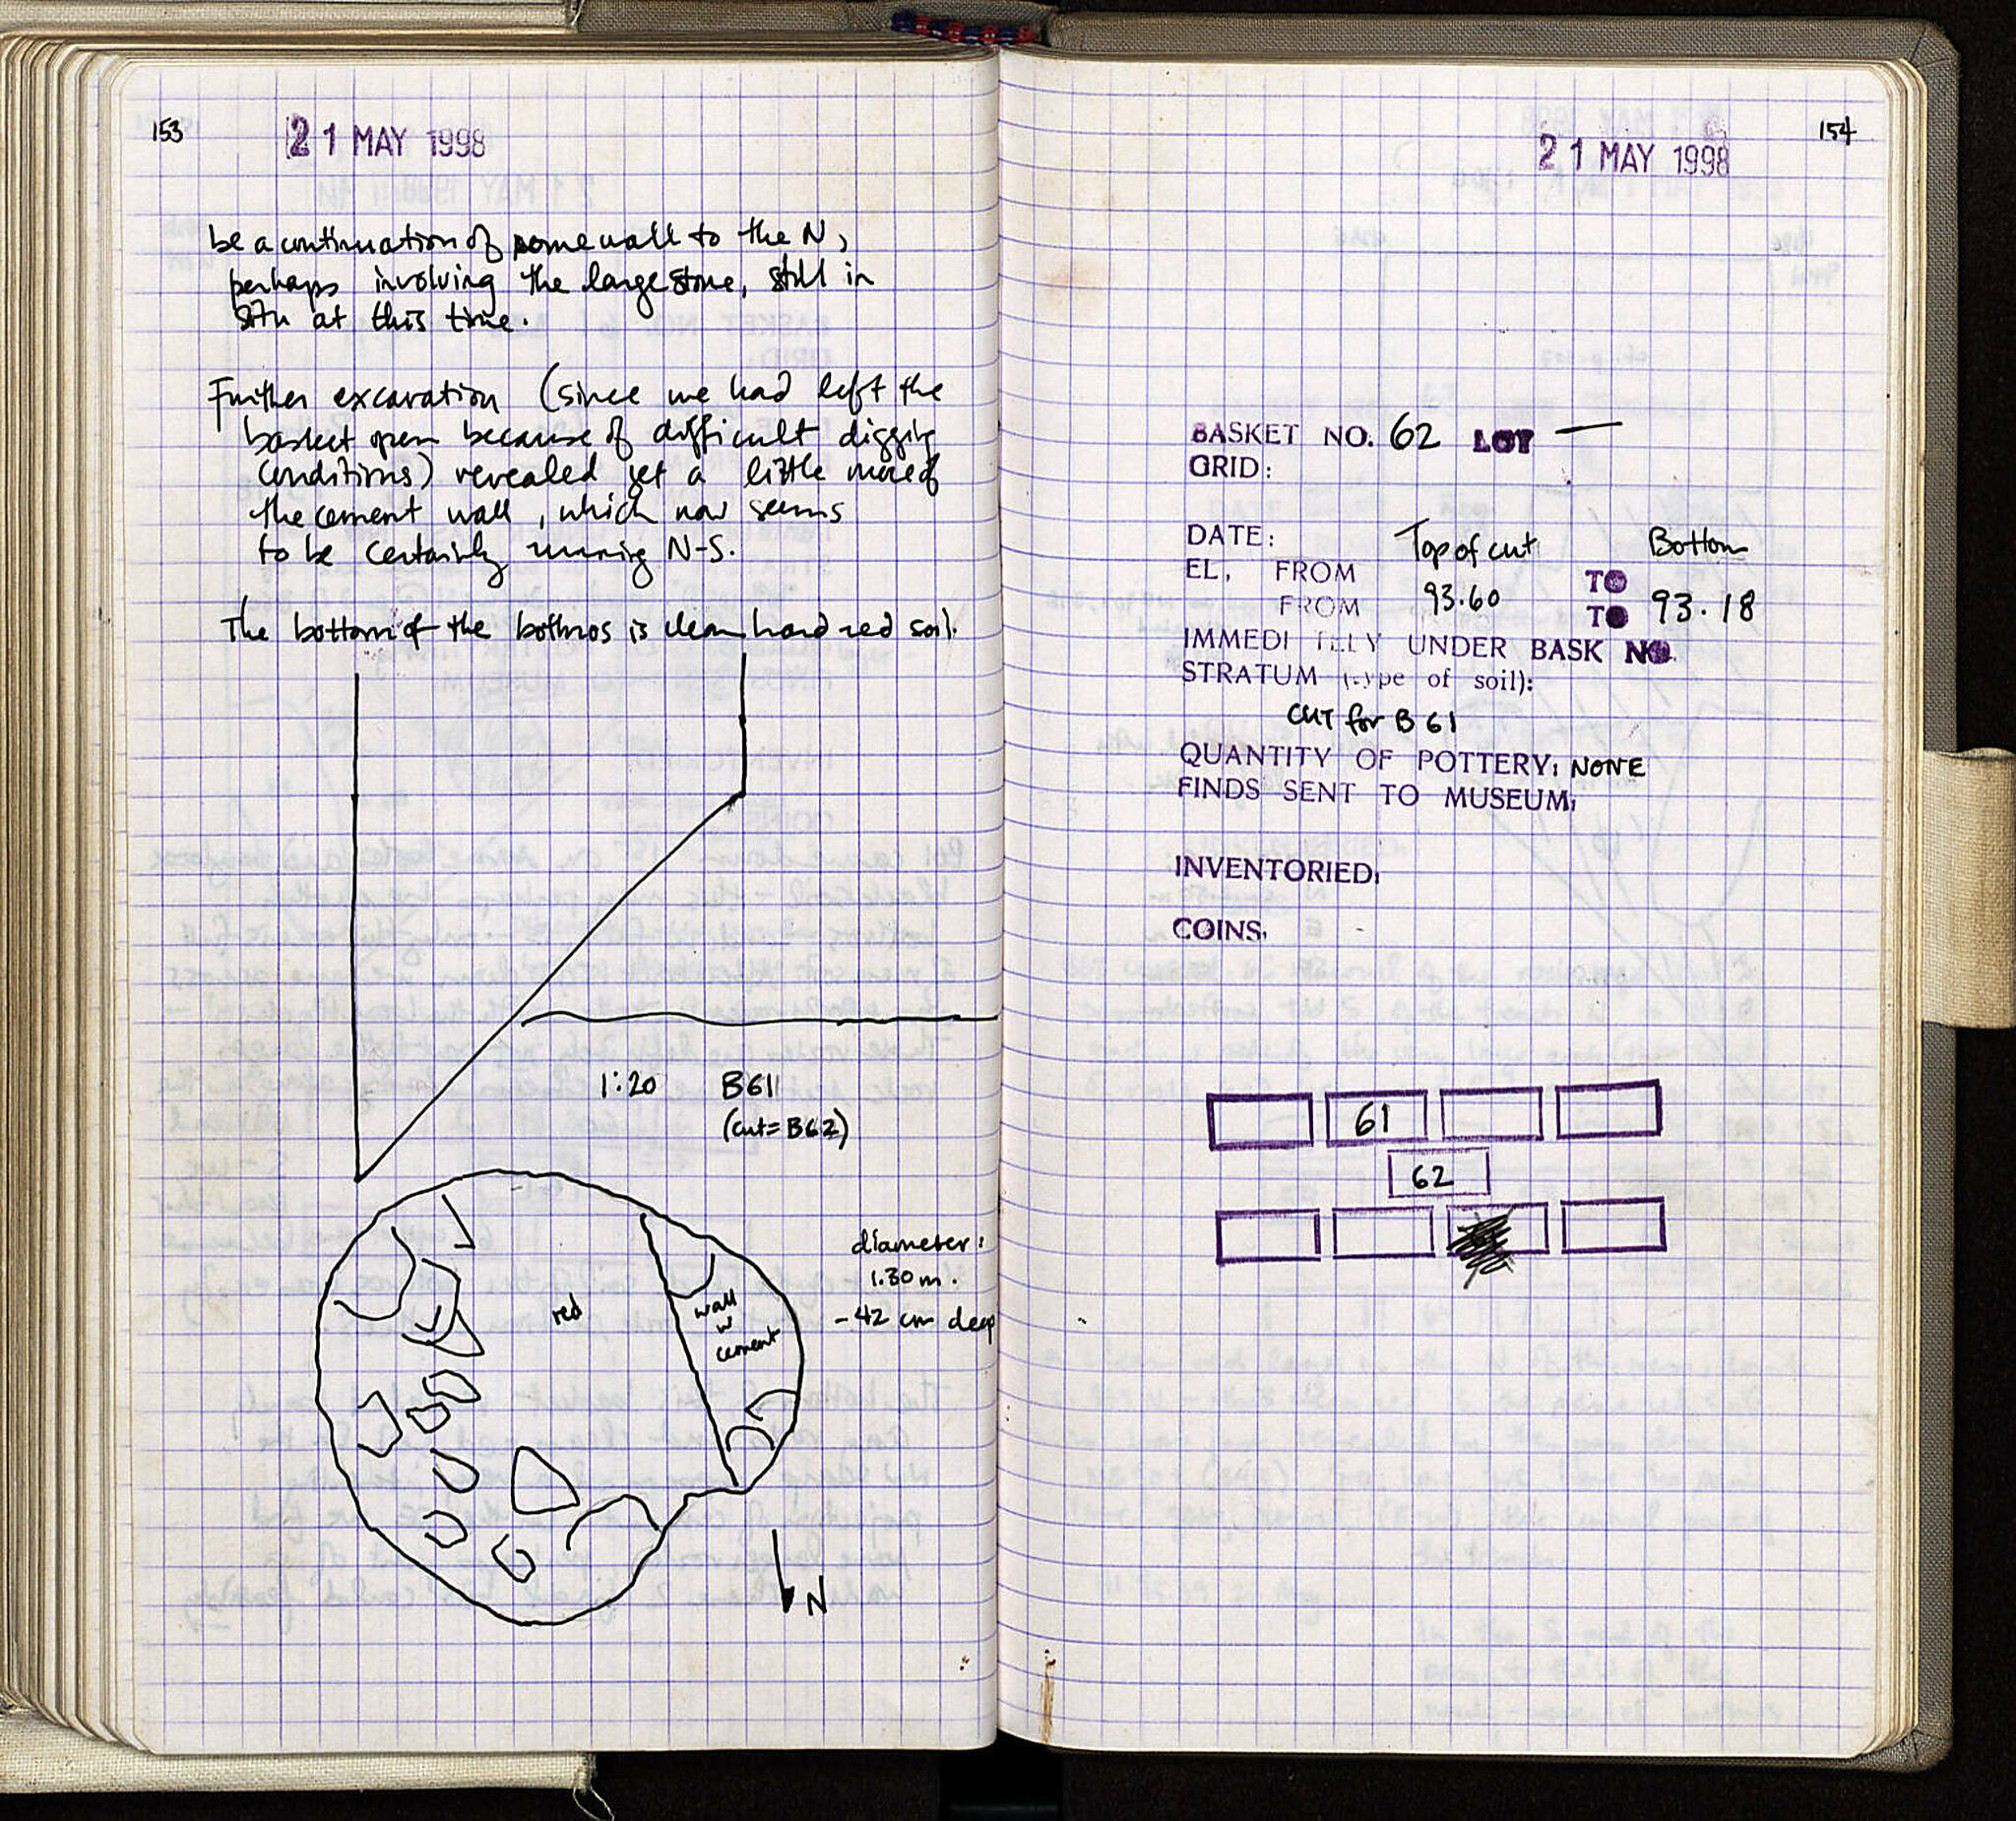 153
21 MAY 1998
be a continuation of some wall to the N,
perhaps involving the large stone, still in
situ at this time.
Further excavation (since we had left the
basket open because of difficult digging
conditions) revealed yet a little more of
the cement wall, which now seems
to be certainly running N-S.
The bottom of the bothros is clean hard red soil.
1:20 B61
(cut = B62)
red
wall
w
cement
diameter:
1.30 m.
-42 cm deep
N
154
21 MAY 1998
BASKET NO. 62 LOT —
GRID:
DATE: Top of cut Bottom
EL. FROM TO
FROM 93.60 TO 93.18
IMMEDI TELY UNDER BASK NO.
STRATUM (type of soil):
CUT for B 61
QUANTITY OF POTTERY: NONE
FINDS SENT TO MUSEUM:
INVENTORIED:
COINS.
61
62